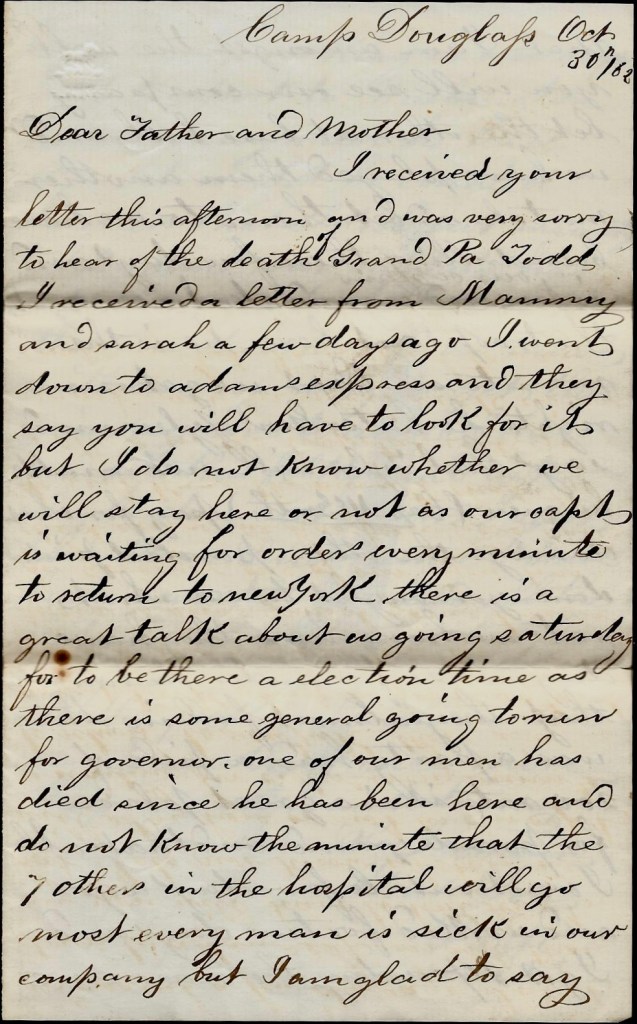 Camp Douglass Oct
30th/62
Dear Father and Mother
I received your
letter this afternoon and was very sorry
to hear of the death of Grand Pa Todd
I received a letter from Mammy
and sarah a few days ago I went
down to adams express and they
say you will have to look for it
but I do not know whether we
will stay here or not as our capt
is waiting for orders every minute
to return to new York there is a
great talk about us going saturday
for to be there a election time as
there is some general going to run
for governor. one of our men has
died since he has been here and
do not know the minute that the
7 others in the hospital will go
most every man is sick in our
company but I am glad to say